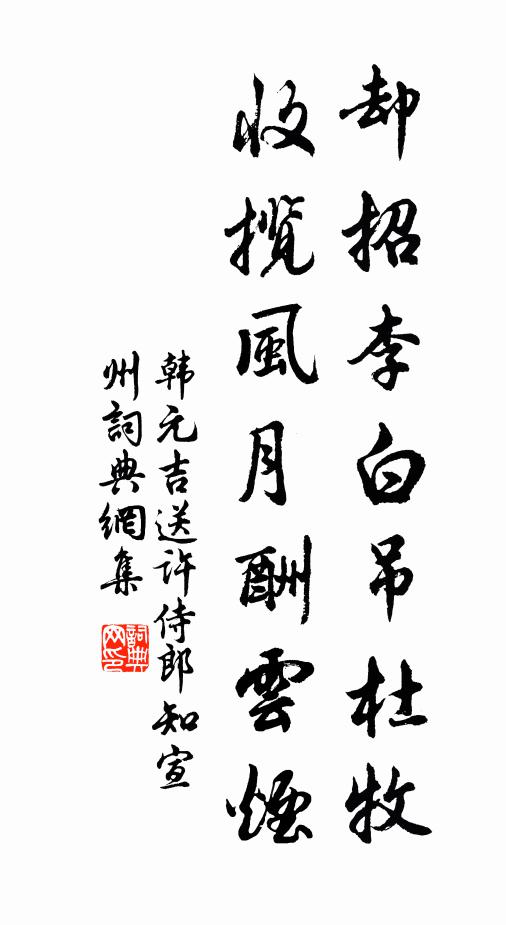 却招李白吊杜牧
收揽風月酬雲煙
韩元吉送许侍郎知宣
州詞典網集
詞典
网印